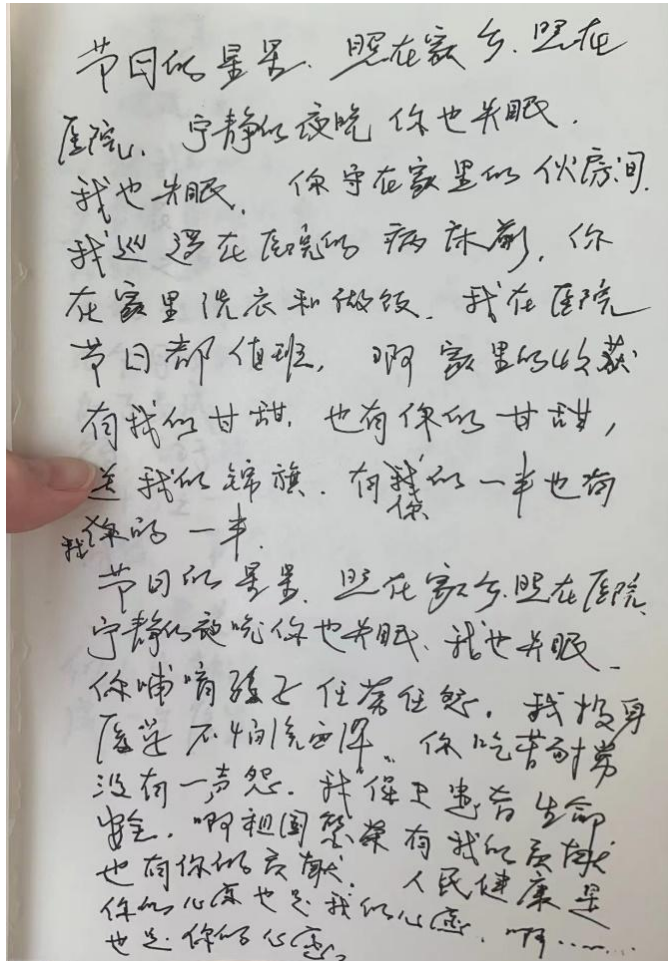 节日的星星、照在家乡、照在
医院、宁静的夜晚你也失眠、
我也失眠、你守在家里的伙房间、
我巡逻在医院的病床前、你
在家里洗衣和做饭、我在医院
节日都值班、啊家里的收获
有我的甘甜、也有你的甘甜，
送我的锦旗、有我的一半也有
你
我你的一半、
节日的星星、照在家乡、照在医院、
宁静的夜晚你也失眠、我也失眠、
你哺育孩子任劳任怨、我投身
医学不怕流血汗、你吃苦耐劳
没有一声怨、我保卫患者生命
安全、啊祖国繁荣有我的贡献
也有你的贡献、人民健康是
你的心愿也是我的心愿、啊……
也是你的心愿。